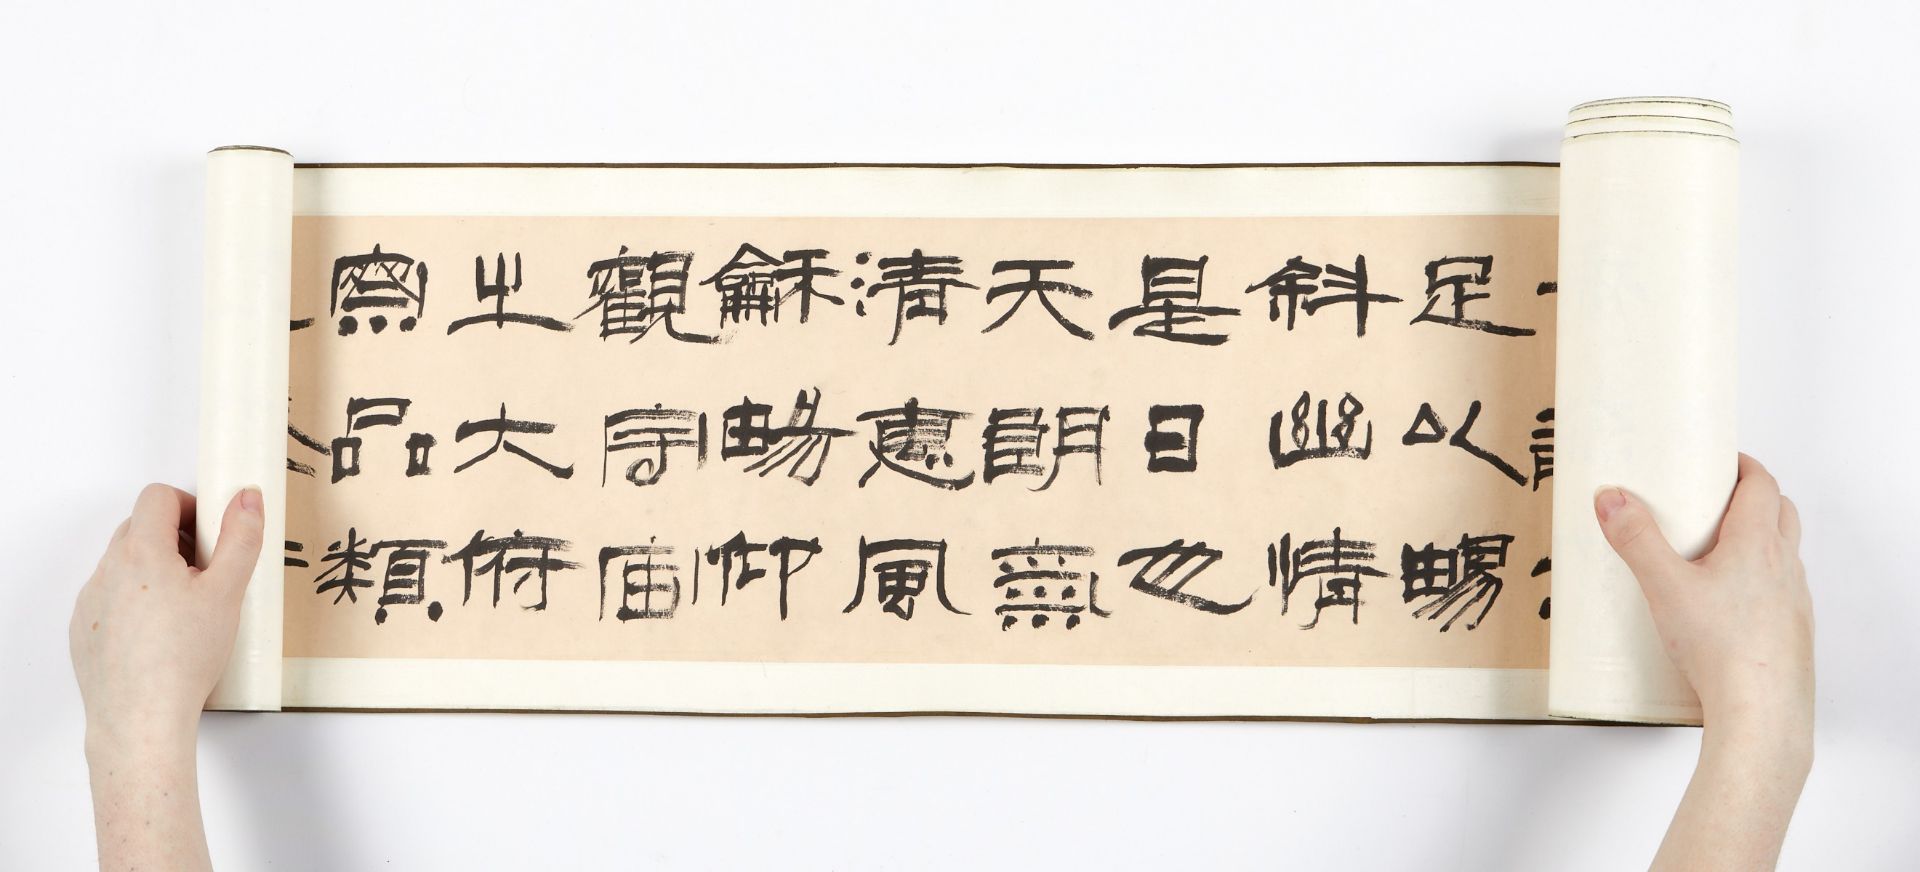 足以暢
斜幽情
是日也
天朗氣
清惠風
龢暢仰
觀宇宙
之大俯
察品類